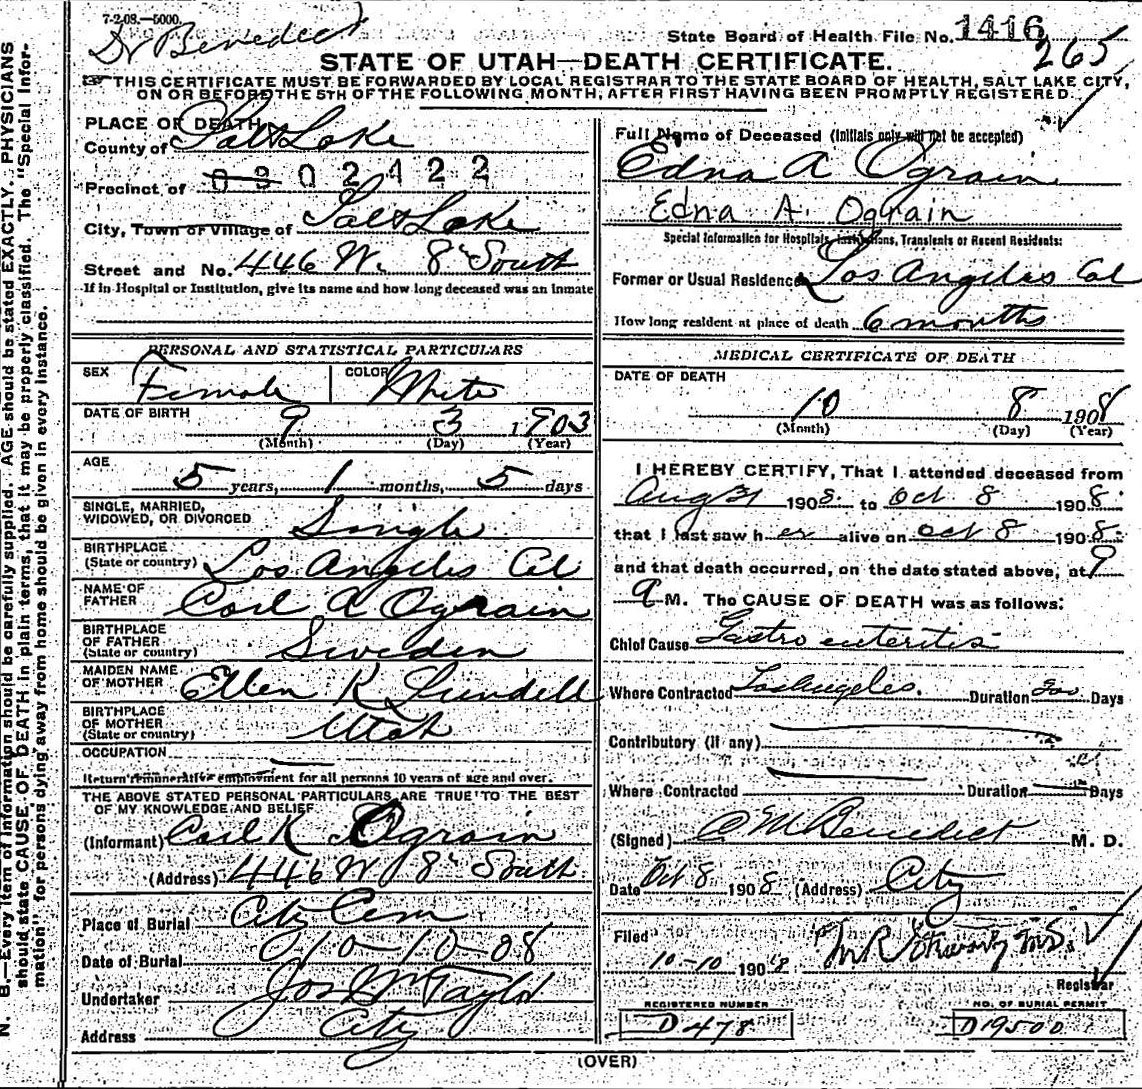 7-2-08.—5000.
Dr Benedict
State Board of Health File No. 1416
265
STATE OF UTAH—DEATH CERTIFICATE.
THIS CERTIFICATE MUST BE FORWARDED BY LOCAL REGISTRAR TO THE STATE BOARD OF HEALTH, SALT LAKE CITY,
ON OR BEFORE THE 5TH OF THE FOLLOWING MONTH, AFTER FIRST HAVING BEEN PROMPTLY REGISTERED.
N. B.—Every item of information should be carefully supplied. AGE should be stated EXACTLY. PHYSICIANS
should state CAUSE OF DEATH in plain terms, that it may be properly classified. The "Special Infor-
mation" for persons dying away from home should be given in every instance.
PLACE OF DEATH
County of Salt Lake
Precinct of 0 3 0 2 1 2 2
City, Town or Village of Salt Lake
Street and No. 446 W. 8" South
If in Hospital or Institution, give its name and how long deceased was an inmate
PERSONAL AND STATISTICAL PARTICULARS
SEX Female COLOR White
DATE OF BIRTH
9 3 1903
(Month) (Day) (Year)
AGE
5 years, 1 months, 5 days
SINGLE, MARRIED,
WIDOWED, OR DIVORCED Single
BIRTHPLACE
(State or country) Los Angeles Cal
NAME OF
FATHER Carl A Ograin
BIRTHPLACE
OF FATHER
(State or country) Sweden
MAIDEN NAME
OF MOTHER Ellen K Lundell
BIRTHPLACE
OF MOTHER
(State or country) Utah
OCCUPATION
Return remunerative employment for all persons 10 years of age and over.
THE ABOVE STATED PERSONAL PARTICULARS ARE TRUE TO THE BEST
OF MY KNOWLEDGE AND BELIEF
(Informant) Carl K Ograin
(Address) 446 W 8" South
Place of Burial City Cem
Date of Burial 10-10-08
Undertaker Jos Wm Taylor
Address City
Full Name of Deceased (Initials only will not be accepted)
Edna A Ograin
Edna A. Ograin
Special Information for Hospitals, Institutions, Transients or Recent Residents:
Former or Usual Residence Los Angeles Cal
How long resident at place of death 6 months
MEDICAL CERTIFICATE OF DEATH
DATE OF DEATH
10 8 1908
(Month) (Day) (Year)
I HEREBY CERTIFY, That I attended deceased from
Aug 31 1908 to Oct 8 1908.
that I last saw her alive on Oct 8 1908.
and that death occurred, on the date stated above, at 9
a M. The CAUSE OF DEATH was as follows:
Chief Cause Gastro enteritis
Where Contracted Los Angeles. Duration Days
Contributory (if any)
Where Contracted Duration Days
(Signed) C M Benedict M. D.
Date Oct 8 1908 (Address) City
Filed
10-10 1908 M R M.D.
Registrar
REGISTERED NUMBER
D 478
NO. OF BURIAL PERMIT
D 19500
(OVER)